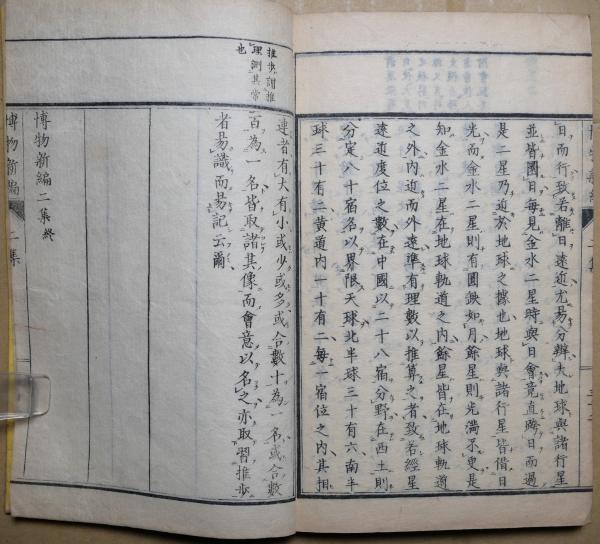 日而行致若離日遠近尤易分辦夫地球與諸行星
並皆國日每見金水二星時與日會竟直臨日而過
是二星乃近於地球之據也地球與諸行星皆借日
光而金水二星則有圓缺如月餘星則光滿不更是
知金水二星在地球軌道之內餘星皆在地球軌道
之外內近而外遠準有理數以推算之者致若經星
遠近度位之數在中國以二十八宿分野在西土則
分定八十宿名以界限天球北半球三十有六南半
球三十有二黃道內一十有二每一宿位之內其相
推步謂推
理測其常
也
連者有大有小或少或多或合數十為一名或合數
百為一名皆取諸其像而會意以名之亦取習推步
者易識而易記云爾
博物新編二集終
博物新編 二集